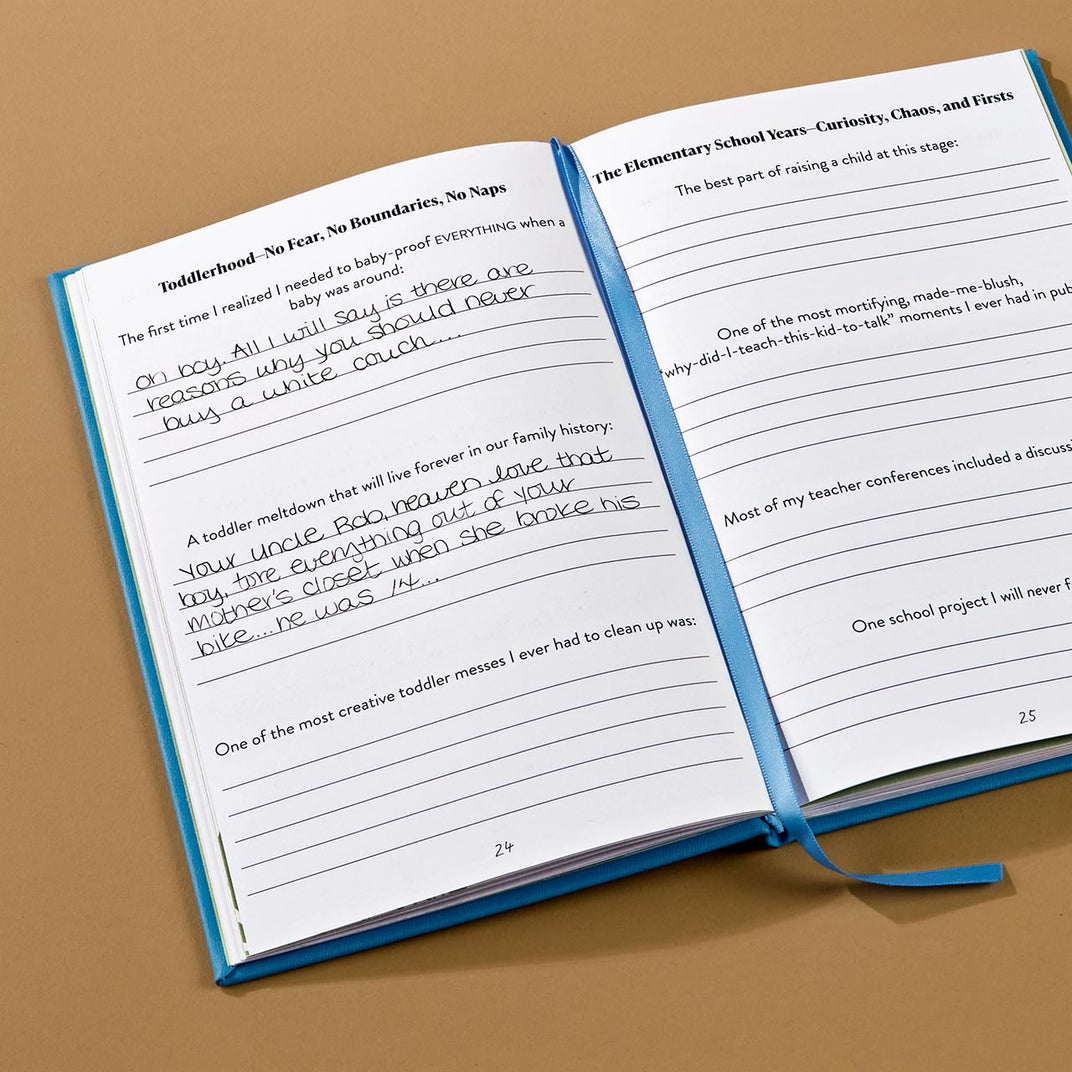 Toddlerhood—No Fear, No Boundaries, No Naps
The first time I realized I needed to baby-proof EVERYTHING when a
baby was around:
oh boy. All I will say is there are
reasons why you should never
buy a white couch....
A toddler meltdown that will live forever in our family history:
your uncle Rob, heaven love that
boy, tore everything out of your
mother's closet when she broke his
bike....he was 14...
One of the most creative toddler messes I ever had to clean up was:
24
The Elementary School Years—Curiosity, Chaos, and Firsts
The best part of raising a child at this stage:
One of the most mortifying, made-me-blush,
"why-did-I-teach-this-kid-to-talk" moments I ever had in pub
Most of my teacher conferences included a discussi
One school project I will never f
25